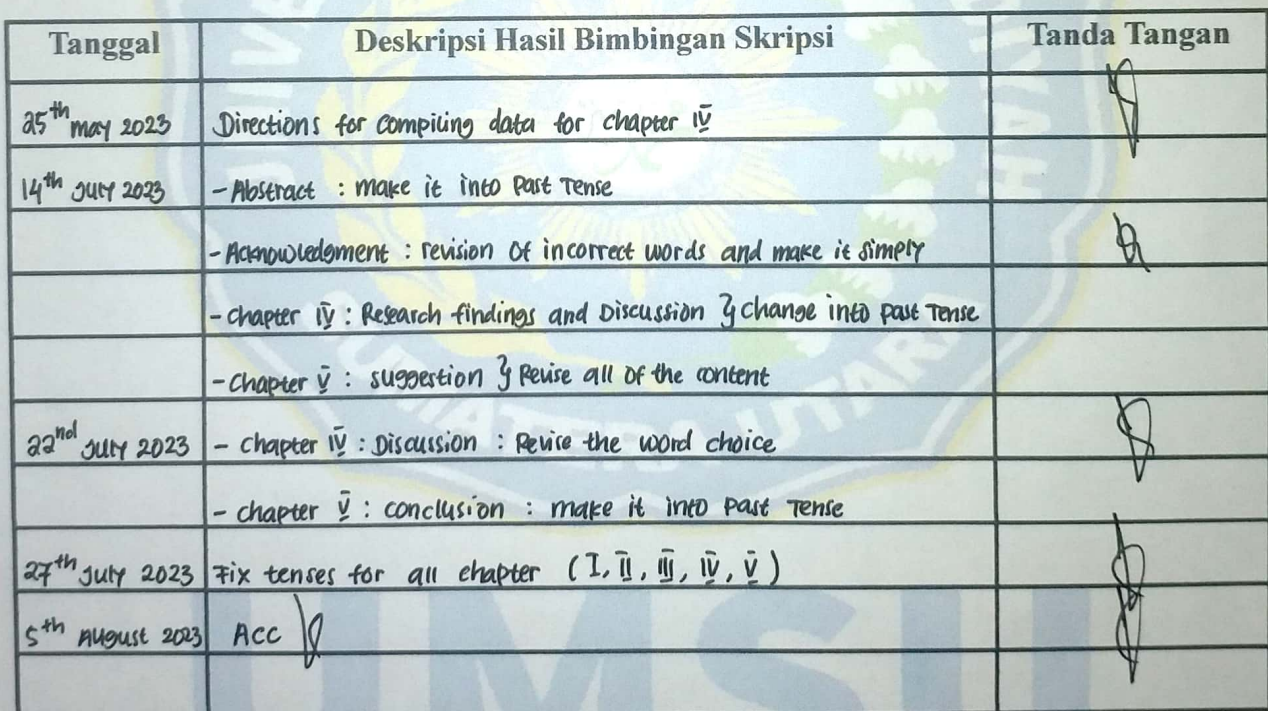 Tanggal Deskripsi Hasil Bimbingan Skripsi Tanda Tangan
25th may 2023 Directions for compiling data for chapter IV
14th July 2023 - Abstract : make it into Past Tense
- Acknowledgment : revision of incorrect words and make it simply
- chapter IV : Research findings and Discussion } change into past Tense
- Chapter V : suggestion } Revise all of the content
22nd July 2023 - chapter IV : Discussion : Revise the word choice
- chapter V : conclusion : make it into past Tense
27th July 2023 Fix tenses for all chapter (I, II, III, IV, V)
5th August 2023 ACC
SUMATERA UTARA
UMSU